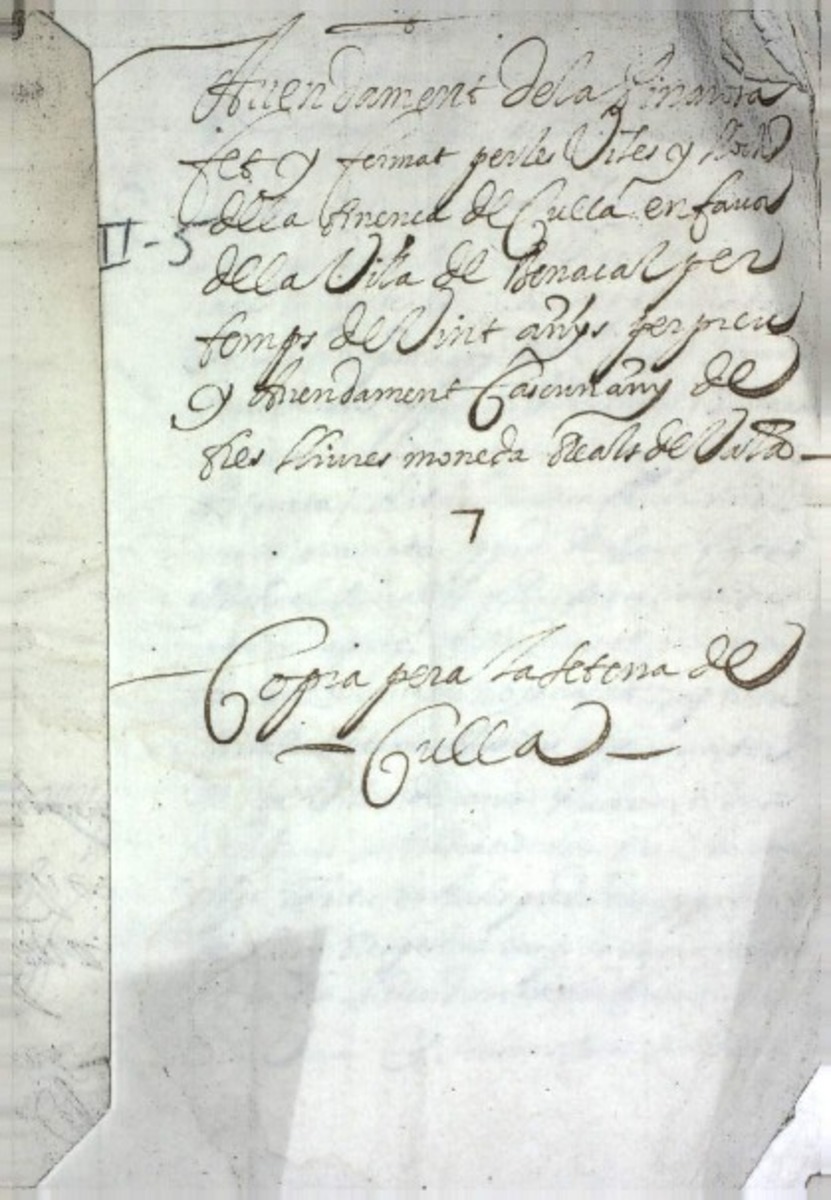 Arrendament de la Pinarda
fet y fermat per les Viles y llochs
de la Tinenca de Culla en favor
II-5
de la Vila de Benacal per
temps de Vint anÿs per preu
y Arrendament Cascun anÿ de
tres lliures moneda Reals de Vala
Copia pera la setena de
— Culla —